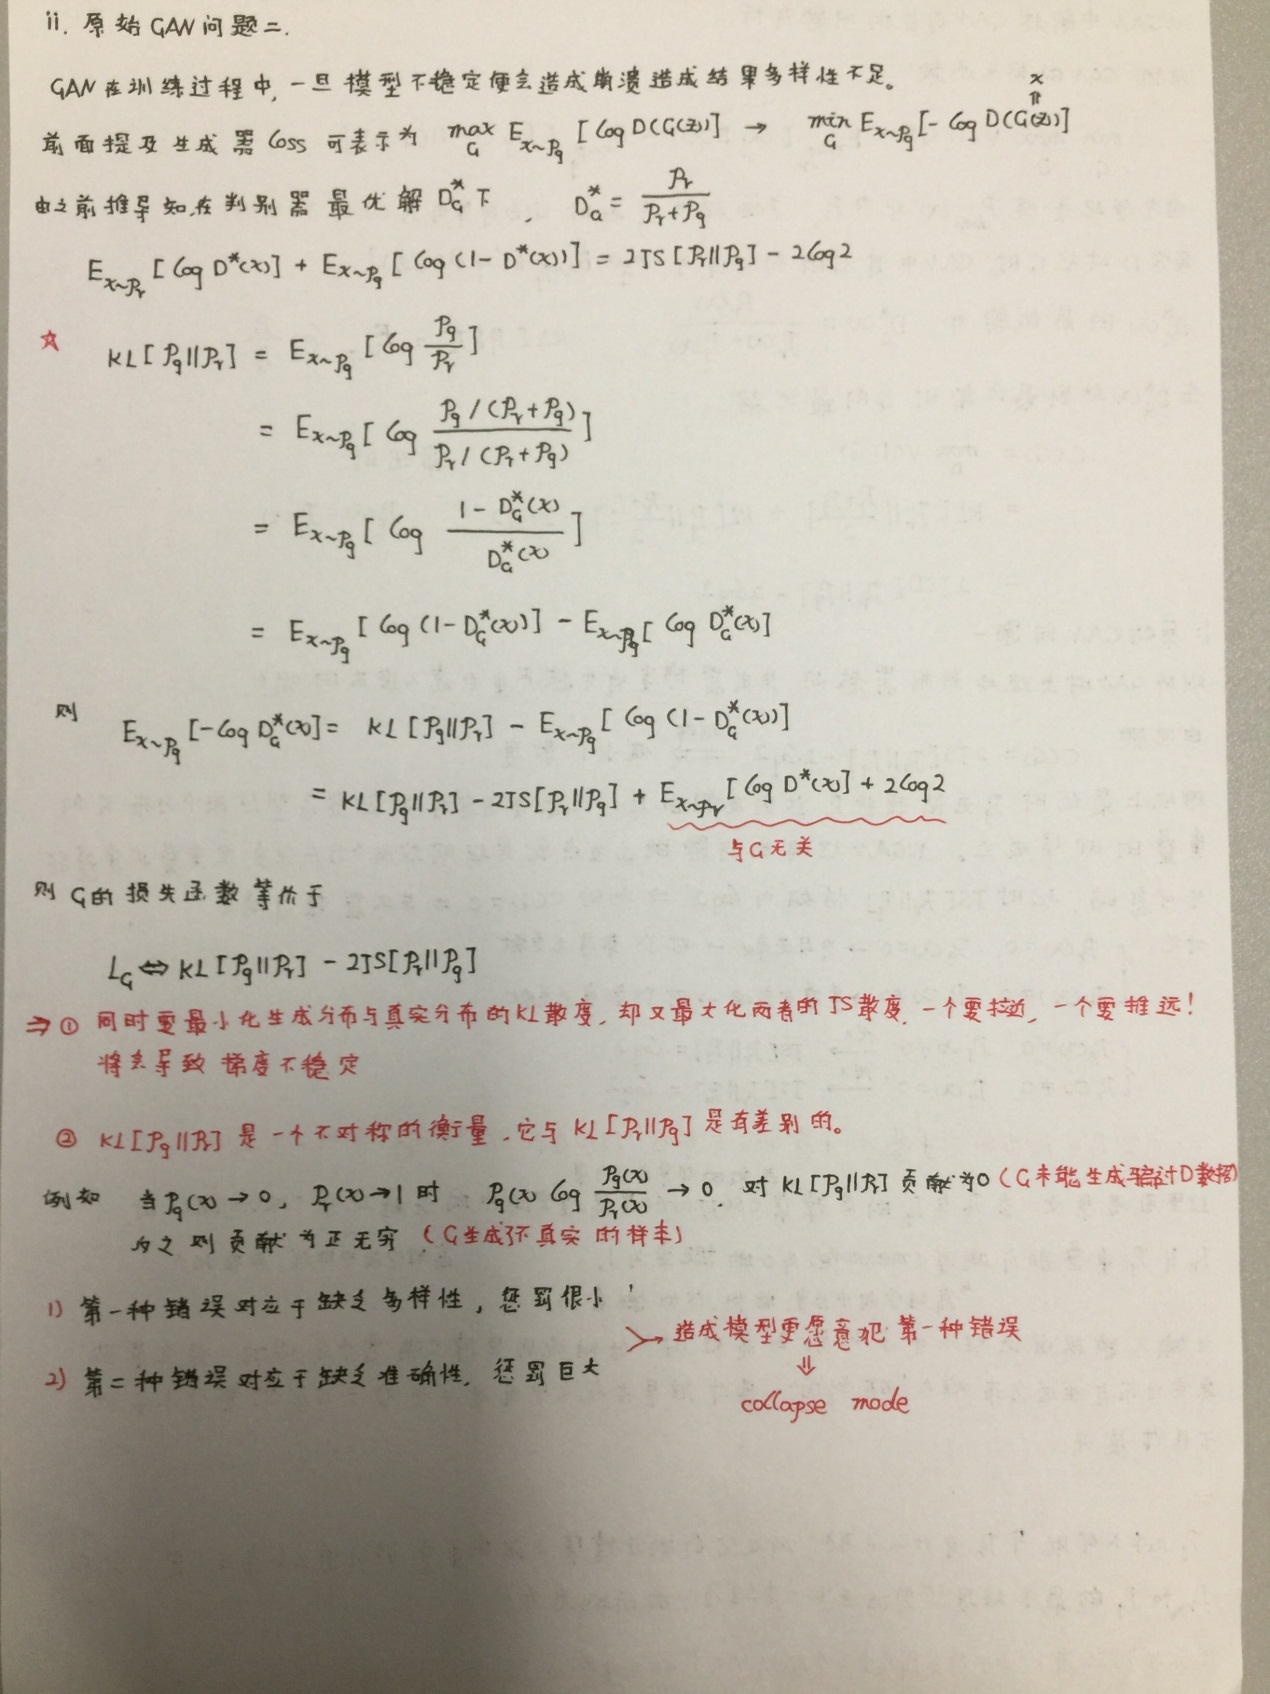 ii. 原始 GAN 问题二.
GAN 在训练过程中, 一旦模型不稳定便会造成崩溃造成结果多样性不足。
x
⇑
前面提及生成器 Loss 可表示为 max_G E_{x~Pg} [log D(G(z))] → min_G E_{x~Pg} [-log D(G(z))]
由之前推导知, 在判别器最优解 D_G^* 下, D_G^* = Pr / (Pr+Pg)
E_{x~Pr} [log D*(x)] + E_{x~Pg} [log (1-D*(x))] = 2JS[Pr||Pg] - 2log2
☆ KL[Pg||Pr] = E_{x~Pg} [log Pg/Pr]
= E_{x~Pg} [log (Pg/(Pr+Pg)) / (Pr/(Pr+Pg))]
= E_{x~Pg} [log (1-D_G^*(x)) / D_G^*(x)]
= E_{x~Pg} [log (1-D_G^*(x))] - E_{x~Pg} [log D_G^*(x)]
则 E_{x~Pg} [-log D_G^*(x)] = KL[Pg||Pr] - E_{x~Pg} [log (1-D_G^*(x))]
= KL[Pg||Pr] - 2JS[Pr||Pg] + E_{x~Pr} [log D*(x)] + 2log2
与G无关
则 G的损失函数等价于
L_G ⇔ KL[Pg||Pr] - 2JS[Pr||Pg]
⇒ ① 同时要最小化生成分布与真实分布的KL散度, 却又最大化两者的JS散度, 一个要拉近, 一个要推远!
将会导致梯度不稳定
② KL[Pg||Pr] 是一个不对称的衡量, 它与 KL[Pr||Pg] 是有差别的。
例如 当 Pg(x)→0, Pr(x)→1 时 Pg(x) log Pg(x)/Pr(x) → 0, 对 KL[Pg||Pr] 贡献为0 (G未能生成骗过D数据)
反之则贡献为正无穷 (G生成了不真实的样本)
1) 第一种错误对应于缺乏多样性, 惩罚很小
造成模型更愿意犯第一种错误
2) 第二种错误对应于缺乏准确性, 惩罚巨大
⇓
collapse mode